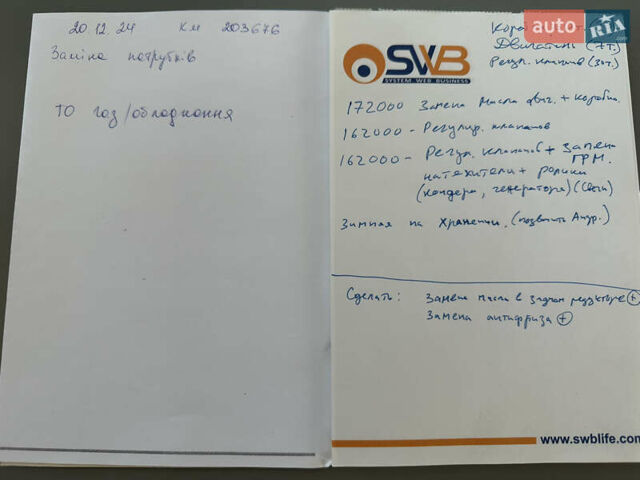 20.12.24 км 203676
Заміна патрубків
ТО газ/обладнання
auto RIA
SWB
SYSTEM WEB BUSINESS
Двигатель (7т.)
Регул. клапанов
172000 Замена масла двиг. + коробка.
162000 - Регулир. клапанов
162000 - Регул. клапанов + Замена
ГРМ.
натяжители + ролики
(кондера, генератора) (Свои)
Зимняя на Хранении, (позвонить Андр.)
Сделать: Замена масла в заднем редукторе +
Замена антифриза +
www.swblife.com